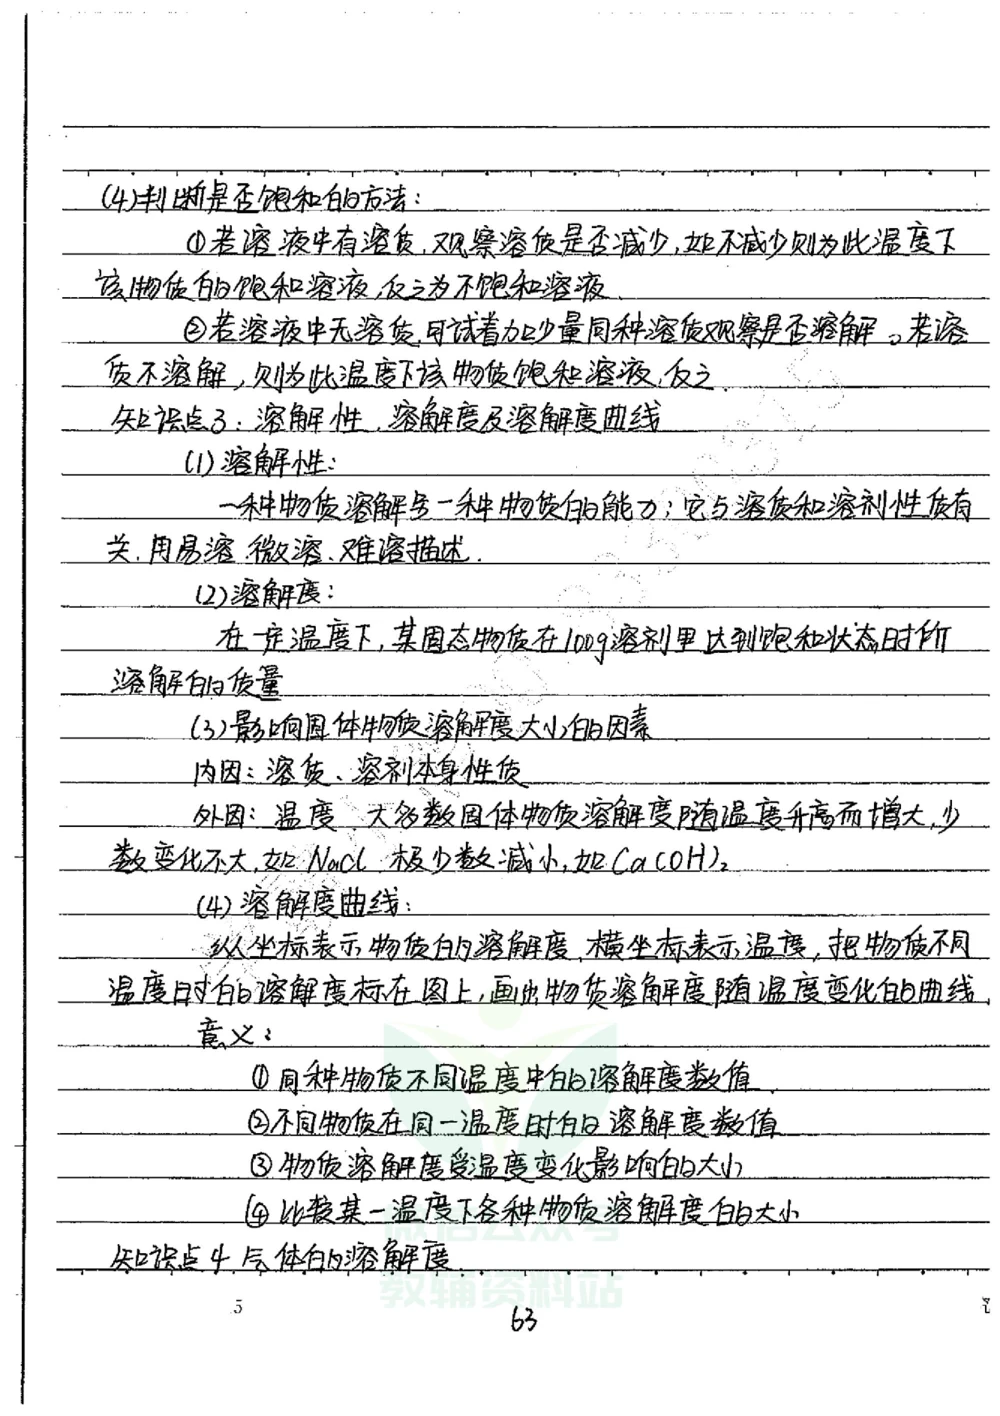 (4)判断是否饱和的方法:
①若溶液中有溶质,观察溶质是否减少,如不减少则为此温度下
该物质的饱和溶液,反之为不饱和溶液.
②若溶液中无溶质,可试着加少量同种溶质观察是否溶解。若溶
质不溶解,则为此温度下该物质饱和溶液,反之.
知识点3:溶解性、溶解度及溶解度曲线
(1)溶解性:
一种物质溶解另一种物质的能力;它与溶质和溶剂性质有
关.用易溶、微溶、难溶描述.
(2)溶解度:
在一定温度下,某固态物质在100g溶剂里达到饱和状态时所
溶解的质量
(3)影响固体物质溶解度大小的因素
内因:溶质、溶剂本身性质
外因:温度 大多数固体物质溶解度随温度升高而增大,少
数变化不大,如NaCl 极少数减小,如Ca(OH)₂
(4)溶解度曲线:
纵坐标表示物质的溶解度,横坐标表示温度,把物质不同
温度时的溶解度标在图上,画出物质溶解度随温度变化的曲线.
意义:
①同种物质不同温度中的溶解度数值
②不同物质在同一温度时的溶解度数值
③物质溶解度受温度变化影响的大小
④比较某一温度下各种物质溶解度的大小
知识点4 气体的溶解度
微信公众号
教辅资料站
5
63